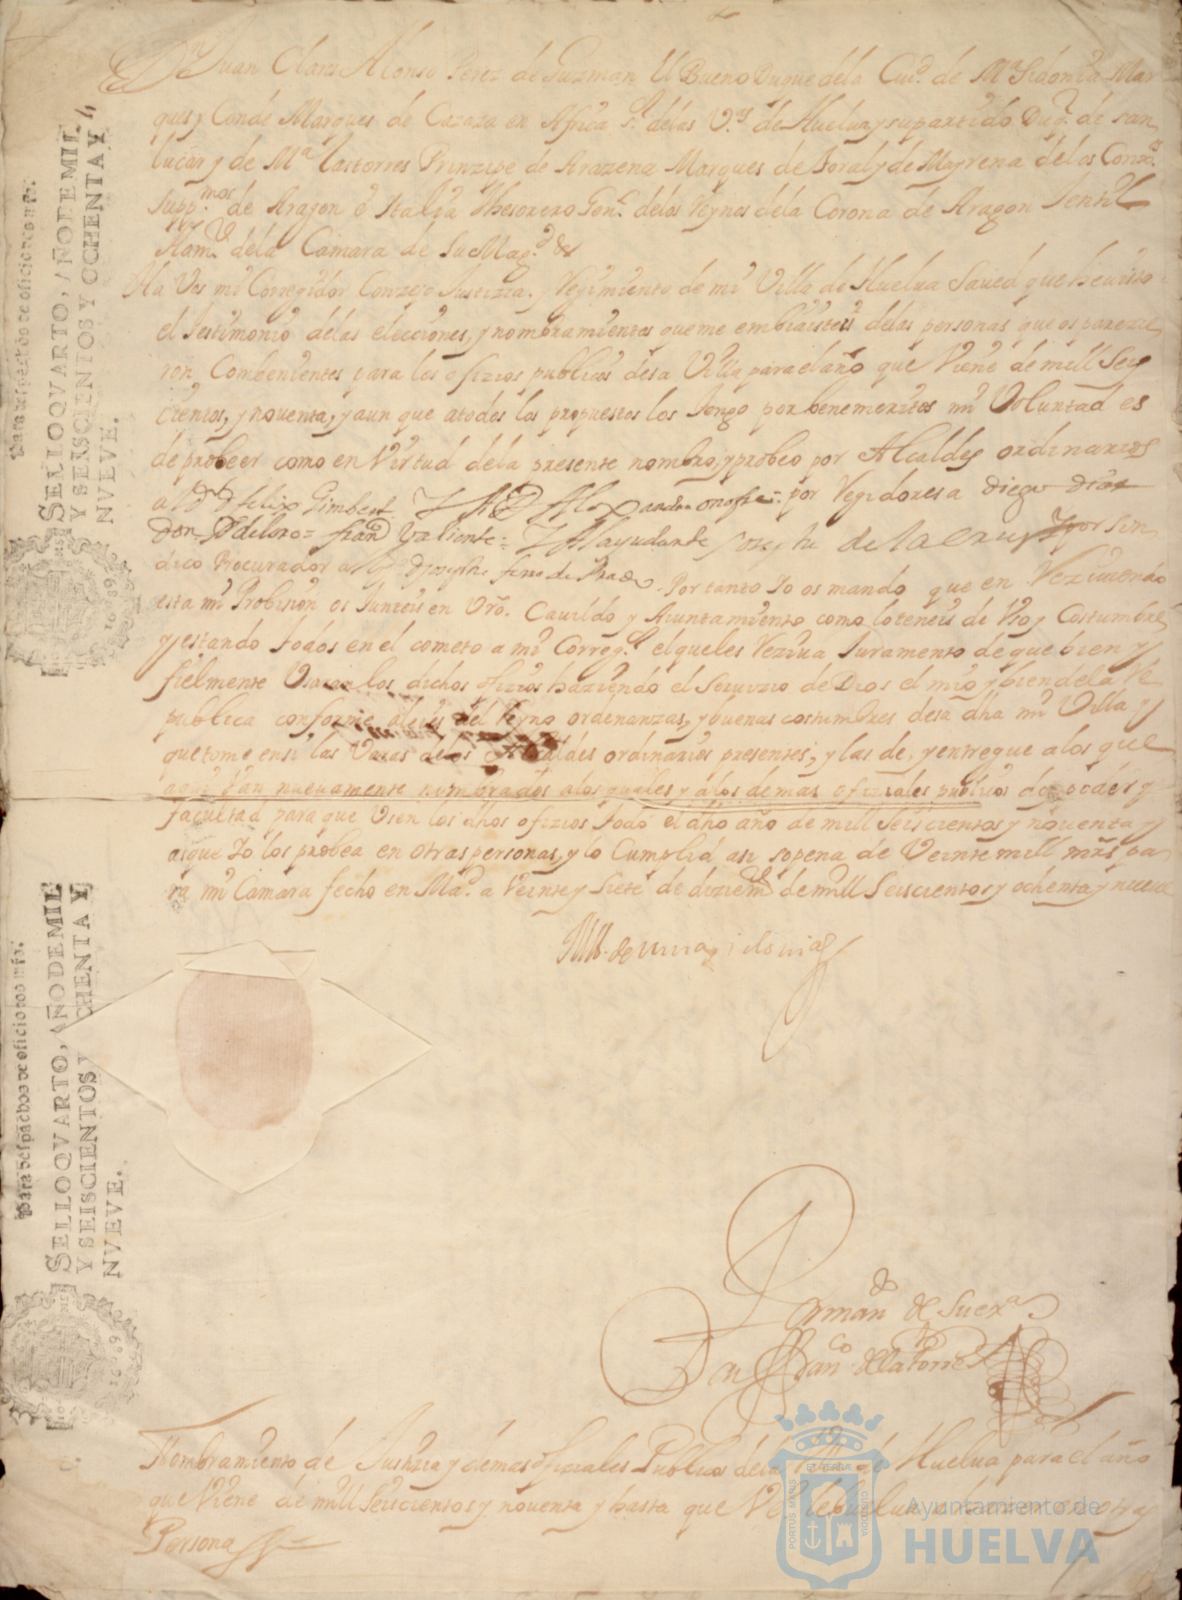 Dn Juan Claro Alonso Perez de Guzman El Bueno Duque dela Ciud. de Ma. Sidonia Mar
ques y Conde Marques de Cazaza en Africa sr. delas Vas. de Huelva y su partido Duq. de san
lucar y de Ma. lastorres Prinzipe de Arazena Marques de Toral y de Mayrena delos Consos.
Suppmos. de Aragon e Italia Thesorero Genl. delos Reynos dela Corona de Aragon Jentil
Hame. dela Camara de Su Magd. &
Ha Vos mi Corregidor Conzejo Justizia y Regimiento de mi Villa de Huelva Saved que he visto
el Testimonio delas elecciones, y nombramientos que me embiasteis delas personas que os parezie
ron Combenientes para los ofizios publicos desa Villa para el año que Viene de mill Seis
cientos, y noventa, y aun que atodos los propuestos los tengo por benemeritos mi Voluntad es
de probeer como en Virtud dela presente nombro, y probeo por Alcaldes ordinarios
a Dn felix Gimbert Y A D Alexandro onofre: por Regidores a diego dias
don P deloro = fran Valiente = Y Al ayudante Joseph de la Cruz Y por Sin
dico Procurador a D Joseph . Por tanto Yo os mando que en Reziviendo
esta mi Probision os Junteis en Vro. Cavildo y Aiuntamiento como loteneis de Vso y Costumbre
y estando todos en el cometo a mi Corregr. el queles Reziva Juramento de que bien y
fielmente Vsaran los dichos ofizios haziendo el Servizio de Dios el mio y bien dela Re
publica conforme aleies del Reyno ordenanzas, y buenas costumbres desa dha mi Villa y
que tome en si las Varas delos Alcaldes ordinarios presentes; y las de, y entregue alos que
aqui Van nuevamente nombrados alos quales y alos demas ofiziales publicos doy poder y
facultad para que Vsen los dhos ofizios todo el dho año de mill Seiscientos y noventa y
asique Yo los probea en otras personas, y lo Cumplid asi sopena de Veinte mill mrs pa
ra mi Camara fecho en Md. a Veinte y Siete de diziemе. de mill Seiscientos y ochenta y nueve
de medina sidonia
Por mando de Su exa.
Don Franco de la Torre
Nombramiento de Justizia y demas ofiziales Publicos dela Villa de Huelva para el año
que Viene de mill Seiscientos y noventa y hasta que V. e.
Persona
Para despachos de oficio dos mrs.
SELLO QVARTO, AÑO DE MIL
Y SEISCIENTOS Y OCHENTA Y
NVEVE.
1689
Para despachos de oficio dos mrs.
SELLO QVARTO, AÑO DE MIL
Y SEISCIENTOS Y OCHENTA Y
NVEVE.
1689
PORTUS MARIS
ET TERRAE
CUSTODIA
Ayuntamiento de
HUELVA